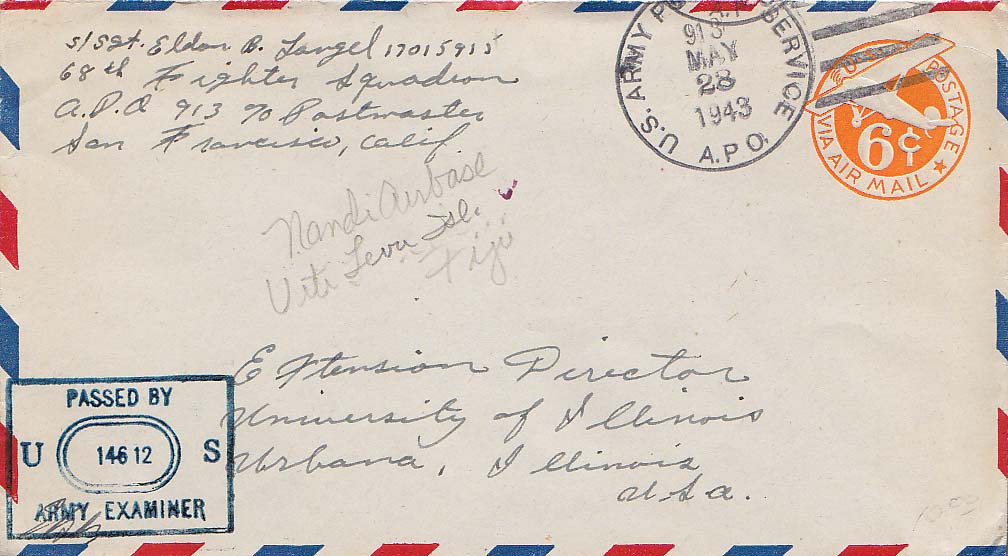 S/Sgt. Eldon B. Langel 17015915
68th Fighter Squadron
A.P.O 913 c/o Postmaster
San Francisco, Calif.
U.S. ARMY POSTAL SERVICE
913
MAY
28
1943
A.P.O.
U.S. POSTAGE
6¢
VIA AIR MAIL
Nandi Airbase
Viti Levu Isl.
Fiji
Extension Director
University of Illinois
Urbana, Illinois
U.S.A.
PASSED BY
U 14612 S
ARMY EXAMINER